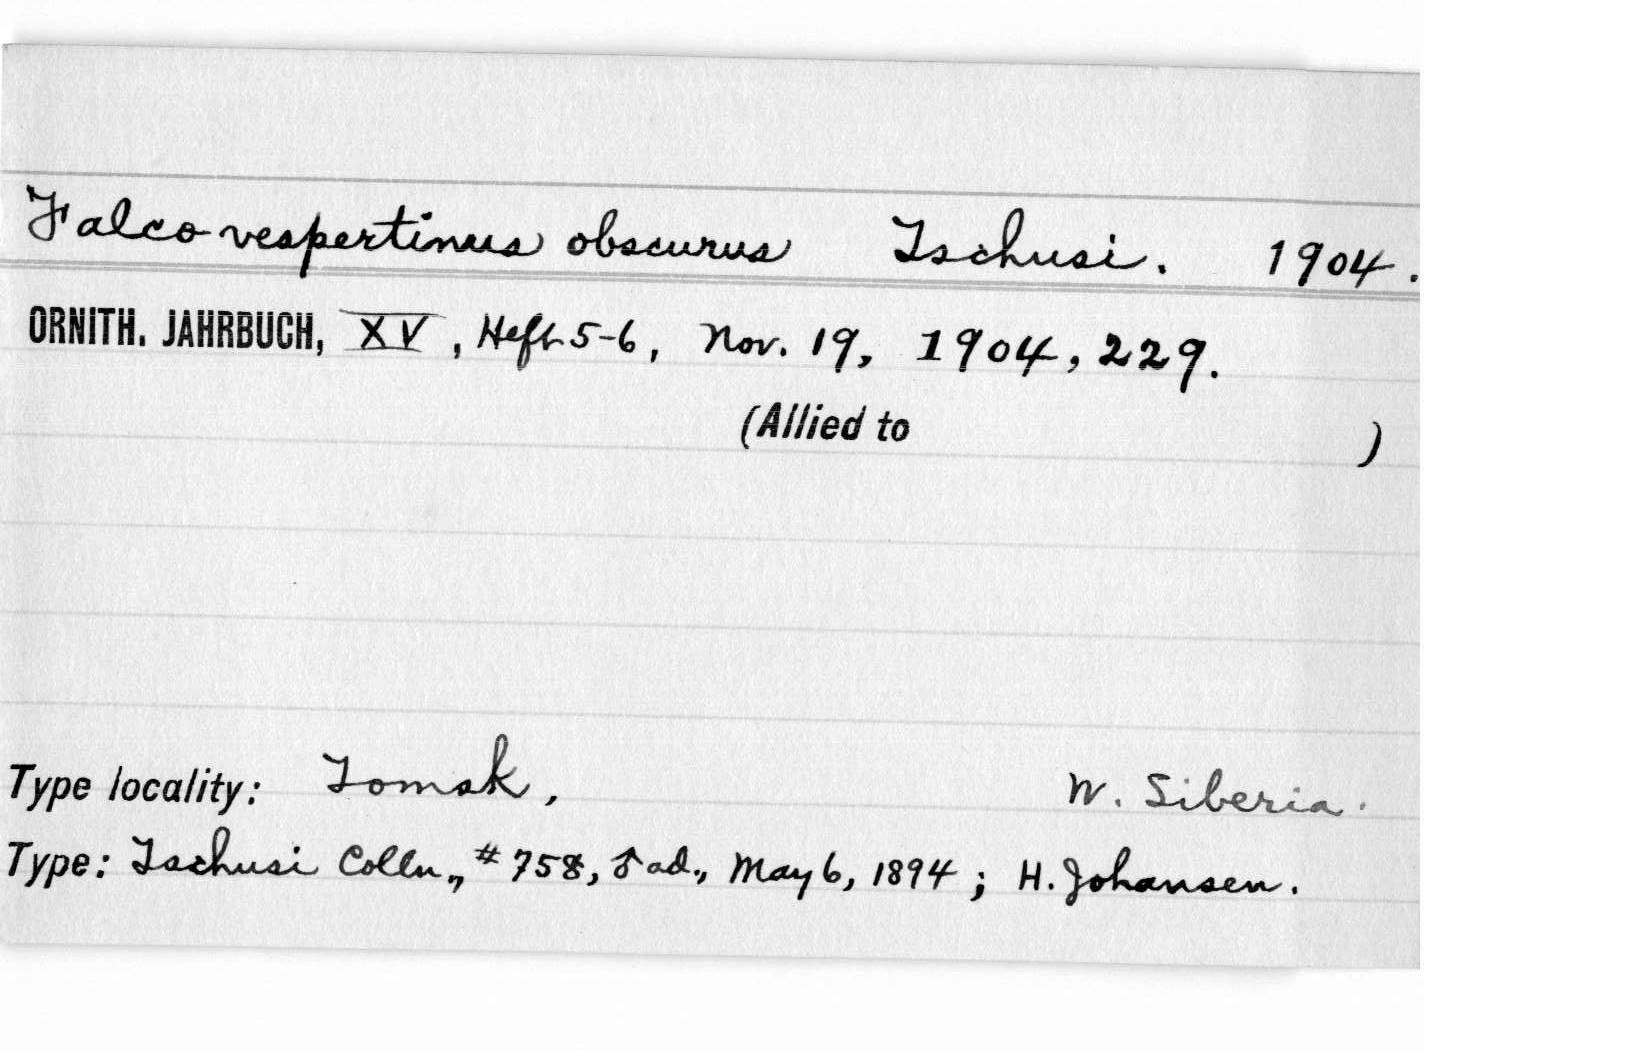 Falco vespertinus obscurus Tschusi. 1904.
ORNITH. JAHRBUCH, XV, Heft 5-6, Nov. 19, 1904, 229.
(Allied to )
Type locality: Tomsk, W. Siberia.
Type: Tschusi Colln., #758, ♂ ad., May 6, 1894; H. Johansen.